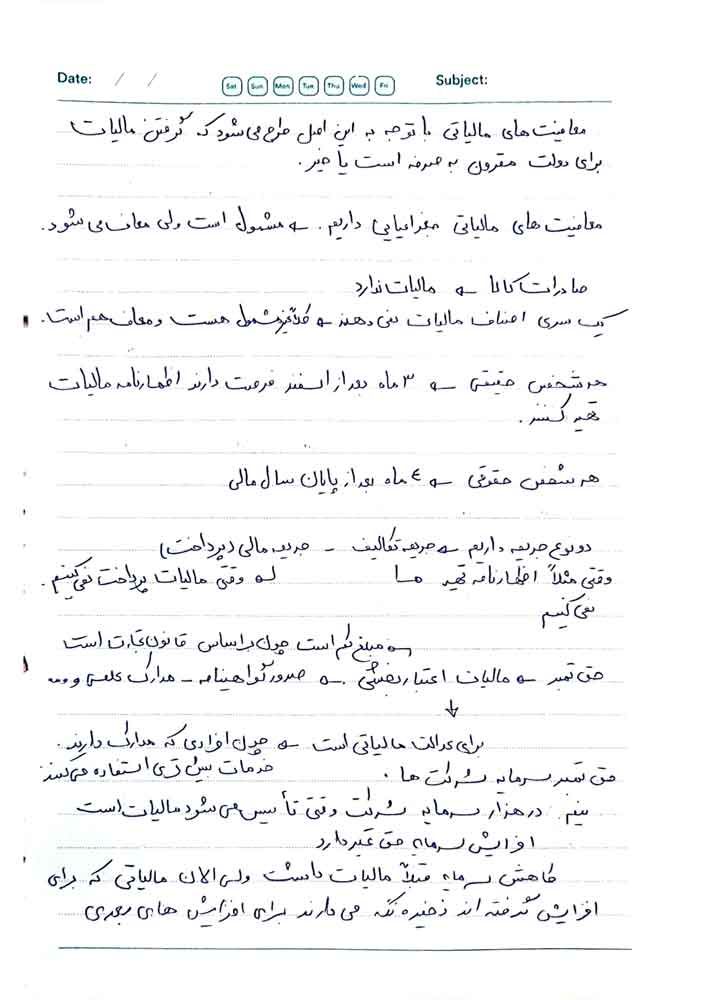 Date: / / Sat Sun Mon Tue Thu Wed Fri Subject:
معافیت های مالیاتی با توجه به این اصل طرح می شود که گرفتن مالیات
برای دولت مقرون به صرفه است یا خیر.
معافیت های مالیاتی جغرافیایی داریم. ← مشمول است ولی معاف می شود.
صادرات کالا ← مالیات ندارد
یک سری اصناف مالیات نمی دهند ← مشمول هست و معاف هم است.
هر شخص حقیقی ← ۳ ماه بعد از اسفند فرصت دارند اظهارنامه مالیات
تهیه کنند.
هر شخص حقوقی ← ٤ ماه بعد از پایان سال مالی
دو نوع جریمه داریم ← جریمه تکالیف - جریمه مالی (پرداخت)
وقتی مثلاً اظهارنامه تهیه ما ← وقتی مالیات پرداخت نمی کنیم.
نمی کنیم
← مبلغ کم است چون براساس قانون تجارت است
حق تمبر ← مالیات اعتبار بخشی. ← صدور گواهینامه - مدارک علمی و ...
↓
برای عدالت مالیاتی است ← چون افرادی که مدارک دارند.
خدمات بیش تری استفاده می کنند
حق تمبر سرمایه شرکت ها.
نیم در هزار سرمایه شرکت وقتی تأسیس می شود مالیات است
افزایش سرمایه حق تمبر دارد
کاهش سرمایه قبلاً مالیات داشت ولی الان مالیاتی که برای
افزایش گرفته اند ذخیره نگه می دارند برای افزایش های بعدی